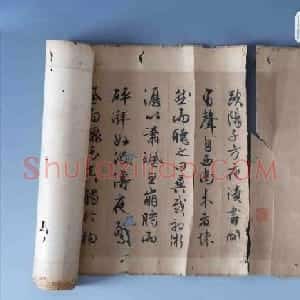 歐陽子方夜讀書聞
有聲自西南來者悚
然而聽之異哉初淅
瀝以蕭颯騰而
砰湃如波濤夜驚
風雨驟至其觸於物